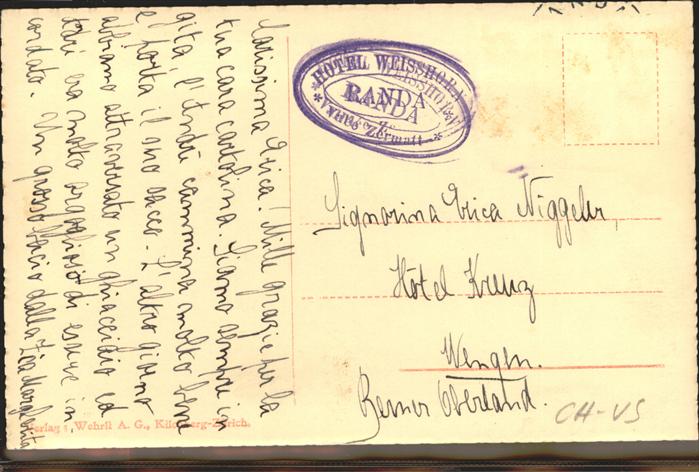 Carissima Erica! Mille grazie per la
tua cara cartolina. Siamo sempre in
gita, l'Endri cammina molto bene
e porta il suo sacco. L'altro giorno
abbiamo attraversato un ghiacciaio ed
Endri era molto orgoglioso di essere in
cordata. Un grosso bacio dalla Zia Margherita
HOTEL WEISSHORN
RANDA
Zermatt
Signorina Erica Niggeler,
Hôtel Kreuz
Wengen.
Berner Oberland.
CH-VS
Verlag: Wehrli A. G., Kilchberg-Zürich.